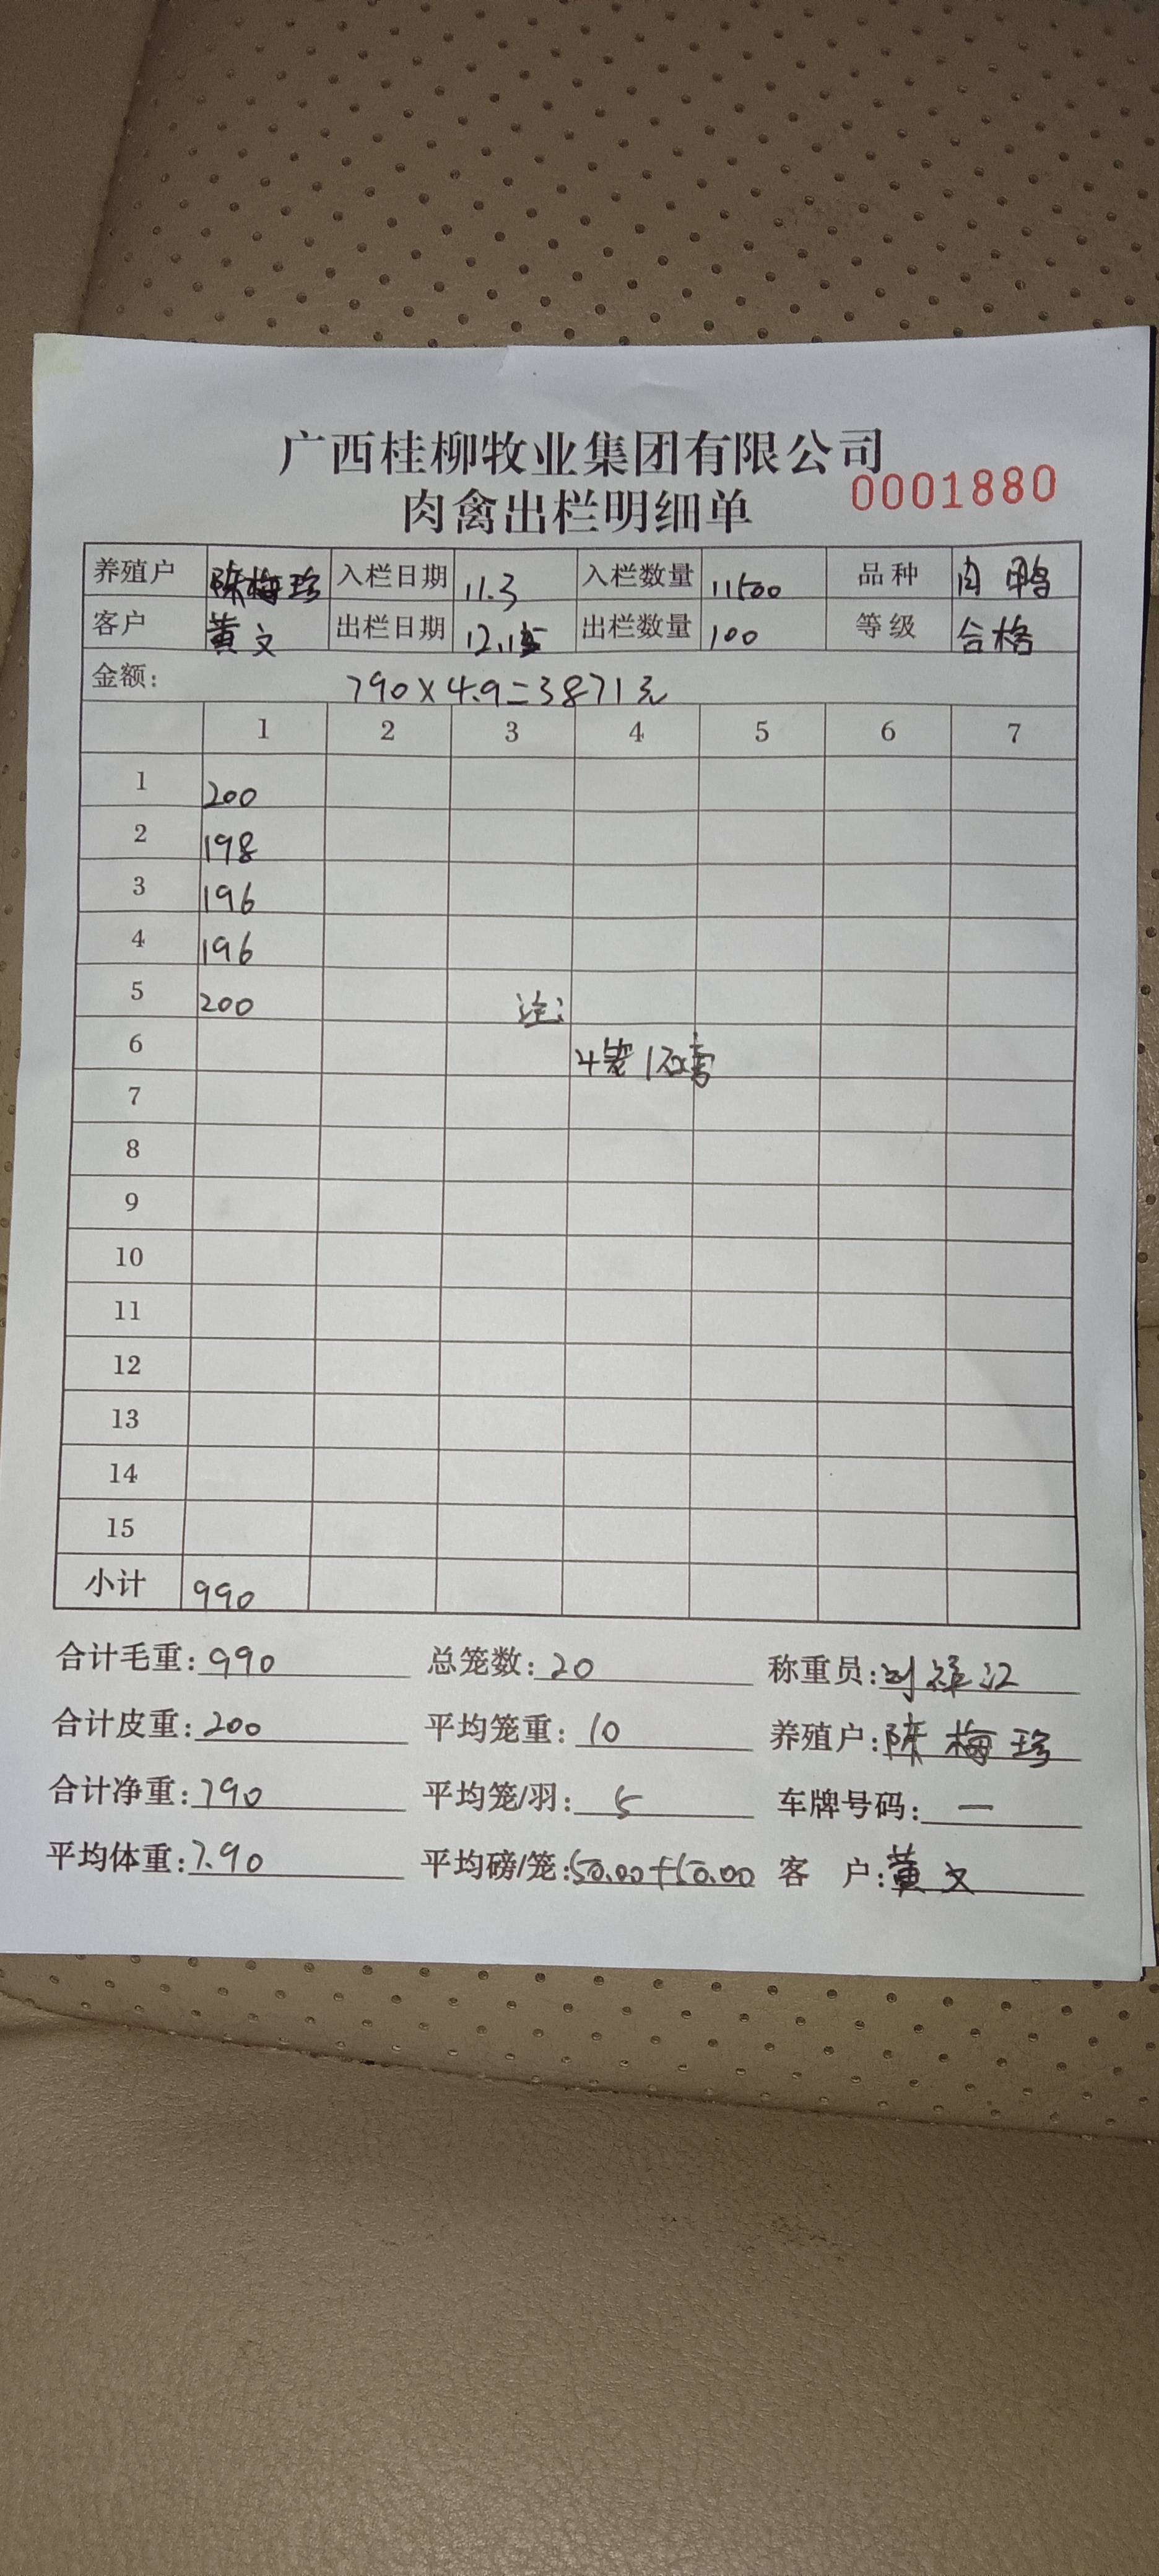 广西桂柳牧业集团有限公司
肉禽出栏明细单 0001880
养殖户 陈梅珍 入栏日期 11.3 入栏数量 11500 品种 肉鸭
客户 黄文 出栏日期 12.15 出栏数量 100 等级 合格
金额: 790×4.9=3871元
1 2 3 4 5 6 7
1 200
2 198
3 196
4 196
5 200 注:
6 4笼1磅
7
8
9
10
11
12
13
14
15
小计 990
合计毛重: 990 总笼数: 20 称重员: 刘 江
合计皮重: 200 平均笼重: 10 养殖户: 陈梅珍
合计净重: 790 平均笼/羽: 5 车牌号码: —
平均体重: 7.90 平均磅/笼: 50.00+50.00 客户: 黄文